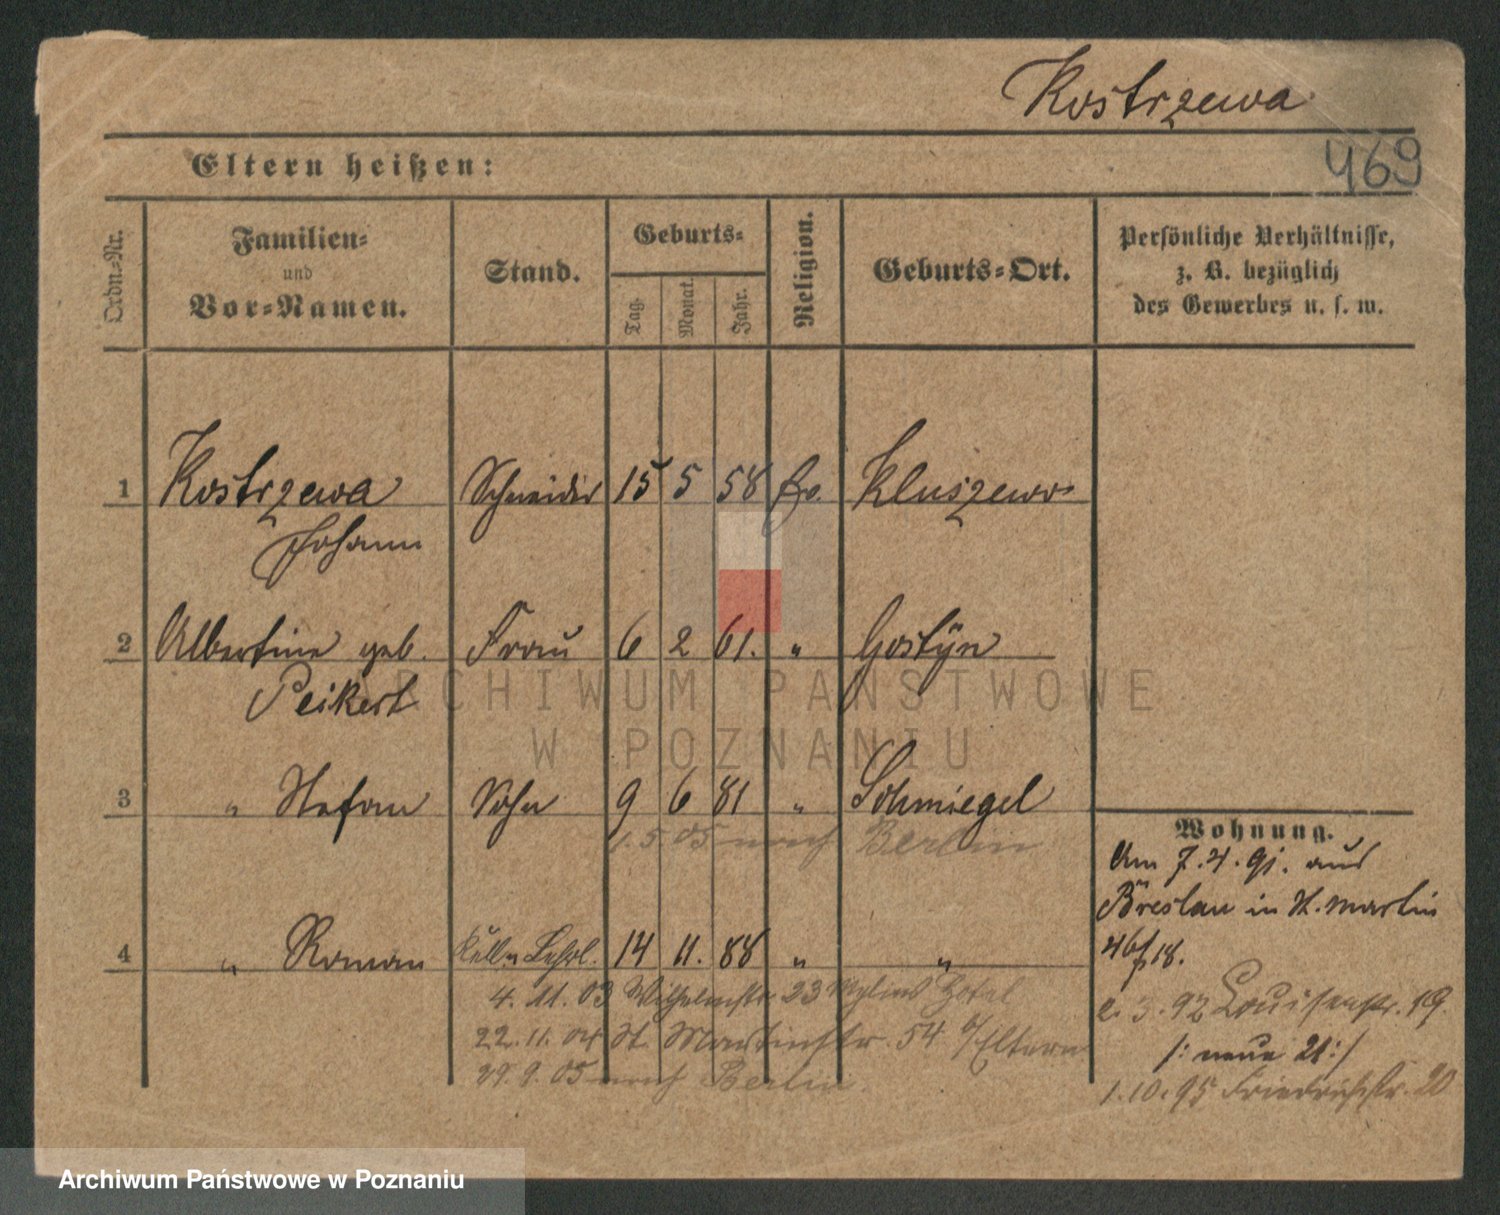 Kostrzewa
469
Eltern heißen:
Ordn.-Nr.
Familien-
und
Vor-Namen.
Stand.
Geburts-
Tag.
Monat.
Jahr.
Religion.
Geburts-Ort.
Persönliche Verhältnisse,
z. B. bezüglich
des Gewerbes u. s. w.
1 Kostrzewa Schneider 15 5 58 Kluszewo
Johann
2 Albertine geb. Frau 6 2 61. " Gostÿn
Peikert
3 " Stefan Sohn 9 6 81 " Schmiegel
1.5.05 nach Berlin
4 " Roman Kelln Lehrl. 14 11. 88 " "
4. 11. 03 Wilhelmstr. 23 Mylius Hotel
22. 11. 04 St. Martinstr. 54 b/Eltern
29. 9. 05 nach Berlin.
Wohnung.
Am 7. 4. 91. aus
Breslau in St. Martin
46/18.
3. 92 Louisenstr. 19.
/: neue 21 :/
1. 10. 95 Friedrichstr. 20
ARCHIWUM PAŃSTWOWE
W POZNANIU
Archiwum Państwowe w Poznaniu